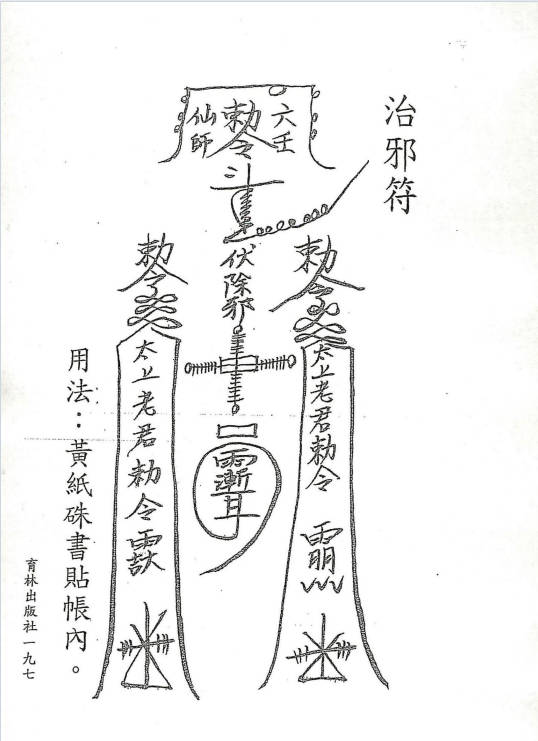 治邪符
六壬
勅令
仙師
斗
伏除邪
勅令
太上老君勅令
勅令
太上老君勅令
用法：黃紙硃書貼帳內。
育林出版社一九七